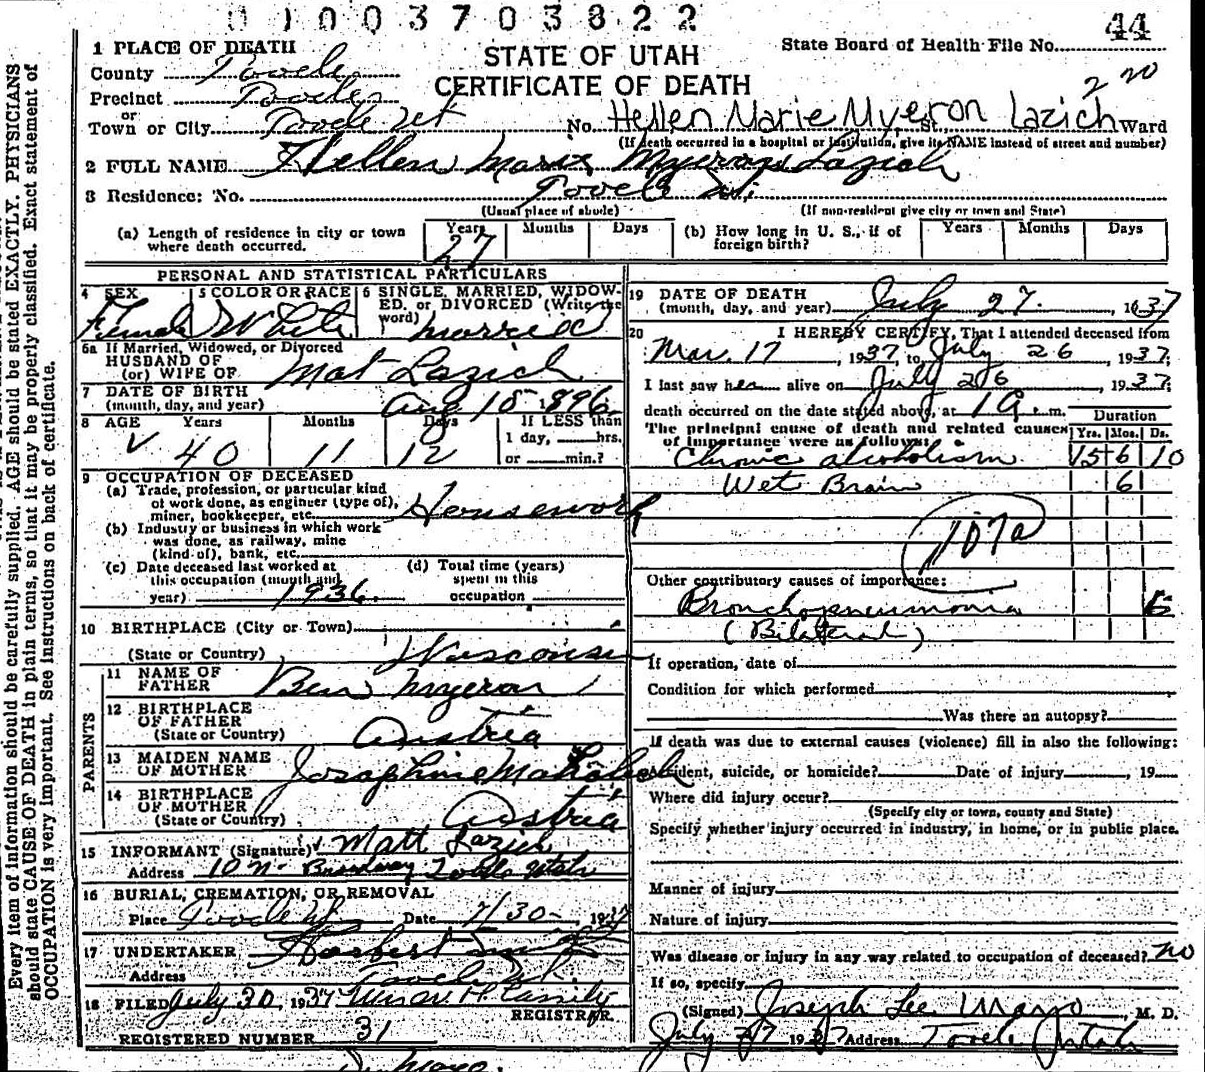 0 1 0 0 3 7 0 3 8 2 2
44
1 PLACE OF DEATH
County Tooele
Precinct Tooele
or
Town or City Tooele Ut
STATE OF UTAH
CERTIFICATE OF DEATH
State Board of Health File No.
No. Hellen Marie Myeron Lazich St., Ward
(If death occurred in a hospital or institution, give its NAME instead of street and number)
2 FULL NAME Hellen Marie Myeron Lazich
3 Residence: No. Tooele Ut.
(Usual place of abode)
(If non-resident give city or town and State)
(a) Length of residence in city or town where death occurred. Years 27 Months Days
(b) How long in U. S., if of foreign birth? Years Months Days
PERSONAL AND STATISTICAL PARTICULARS
4 SEX Female
5 COLOR OR RACE White
6 SINGLE, MARRIED, WIDOWED, or DIVORCED (Write the word) married
6a If Married, Widowed, or Divorced
HUSBAND OF
(or) WIFE OF Mat Lazich
7 DATE OF BIRTH
(month, day, and year) Aug 15 1896
8 AGE Years 40 Months 11 Days 12 If LESS than
1 day, hrs.
or min.?
9 OCCUPATION OF DECEASED
(a) Trade, profession, or particular kind
of work done, as engineer (type of),
miner, bookkeeper, etc. Housework
(b) Industry or business in which work
was done, as railway, mine
(kind of), bank, etc.
(c) Date deceased last worked at
this occupation (month and
year) 1936.
(d) Total time (years)
spent in this
occupation
10 BIRTHPLACE (City or Town)
(State or Country) Wisconsin
PARENTS
11 NAME OF
FATHER Ben Myeron
12 BIRTHPLACE
OF FATHER
(State or Country) Austria
13 MAIDEN NAME
OF MOTHER Josephine
14 BIRTHPLACE
OF MOTHER
(State or Country) Austria
15 INFORMANT (Signature) Matt Lazich
Address 10 N. Broadway Tooele Utah
16 BURIAL, CREMATION, OR REMOVAL
Place Tooele Ut. Date 7/30 - 1937
17 UNDERTAKER Herbert
Address Tooele Ut.
18 FILED July 30, 1937
REGISTRAR.
REGISTERED NUMBER 31
19 DATE OF DEATH
(month, day, and year) July 27. 1937
20 I HEREBY CERTIFY, That I attended deceased from
Mar. 17, 1937, to July 26, 1937;
I last saw her alive on July 26, 1937;
death occurred on the date stated above, at 1 a. m.
The principal cause of death and related causes
of importance were as follows:
Duration
Yrs. Mos. Ds.
Chronic alcoholism 15 6 10
Wet Brain 6
107a
Other contributory causes of importance:
Bronchopneumonia
(Bilateral)
If operation, date of
Condition for which performed
Was there an autopsy?
If death was due to external causes (violence) fill in also the following:
Accident, suicide, or homicide? Date of injury , 19
Where did injury occur?
(Specify city or town, county and State)
Specify whether injury occurred in industry, in home, or in public place.
Manner of injury
Nature of injury
Was disease or injury in any way related to occupation of deceased? no
If so, specify
(Signed) Joseph Lee Mayo, M. D.
July 27 1937 Address Tooele Utah
Every item of information should be carefully supplied. AGE should be stated EXACTLY. PHYSICIANS
should state CAUSE OF DEATH in plain terms, so that it may be properly classified. Exact statement of
OCCUPATION is very important. See instructions on back of certificate.